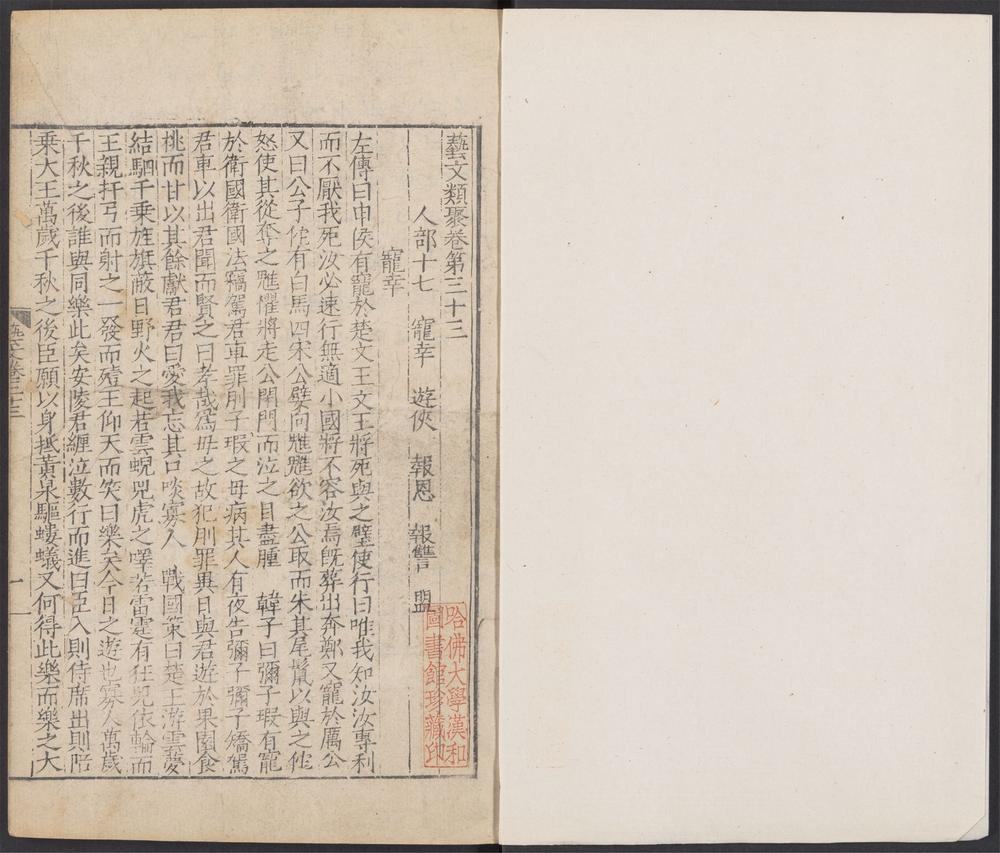 藝文類聚卷第三十三
人部十七 寵幸 遊俠 報恩 報讐 盟
寵幸
左傳曰申侯有寵於楚文王文王將死與之璧使行曰唯我知汝汝專利
而不厭我死汝必速行無適小國將不容汝焉旣葬出奔鄭又寵於厲公
又曰公子佗有白馬四宋公嬖向魋魋欲之公取而朱其尾鬣以與之佗
怒使其從奪之魋懼將走公閉門而泣之目盡腫 韓子曰彌子瑕有寵
於衛國衛國法竊駕君車罪刖子瑕之母病其人有夜告彌子彌子矯駕
君車以出君聞而賢之曰孝哉爲母之故犯刖罪異日與君遊於果園食
桃而甘以其餘獻君君曰愛我忘其口啖寡人 戰國策曰楚王游雲夢
結駟千乗旌旗蔽日野火之起若雲蜺兕虎之嘷若雷霆有狂兕依輪而
王親扞弓而射之一發而殪王仰天而笑曰樂矣今日之遊也寡人萬歲
千秋之後誰與同樂此矣安陵君纏泣數行而進曰臣入則侍席出則陪
乗大王萬歲千秋之後臣願以身抵黃泉驅螻蟻又何得此樂而樂之大
藝文卷三十三
一
哈佛大學漢和
圖書館珍藏印